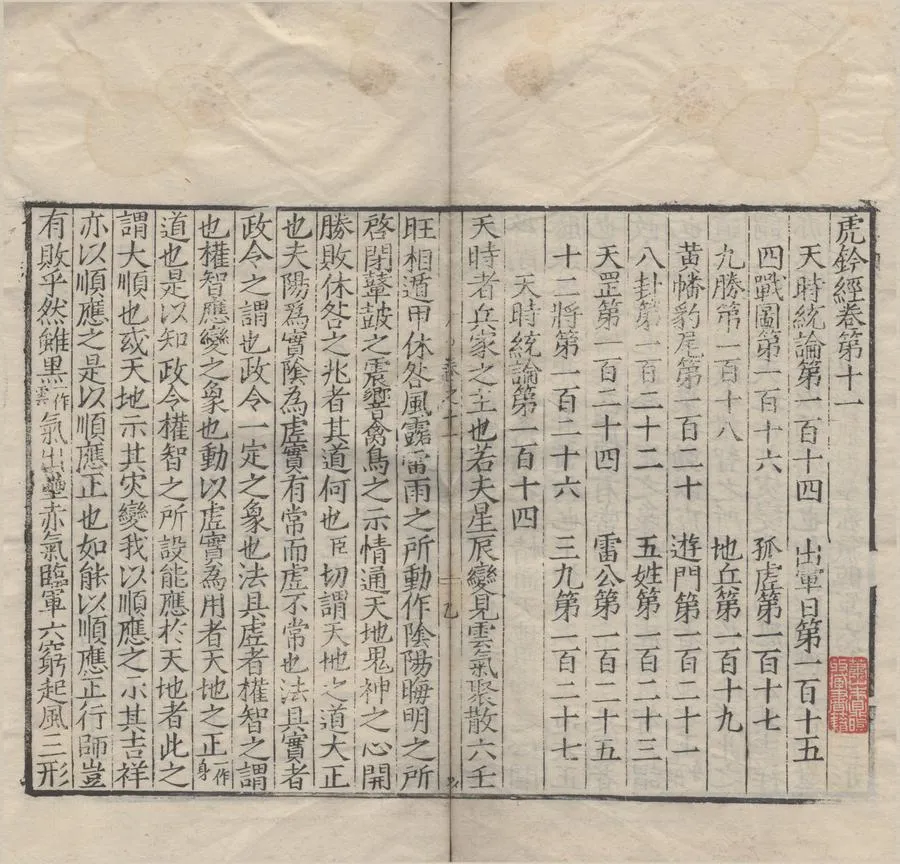 虎鈐經卷第十一
天時統論第一百十四　出軍日第一百十五
四戰圖第一百十六　孤虛第一百十七
九勝第一百十八　地丘第一百十九
黃幡豹尾第一百二十　遊門第一百二十一
八卦第一百二十二　五姓第一百二十三
天罡第一百二十四　雷公第一百二十五
十二將第一百二十六　三九第一百二十七
天時統論第一百十四
天時者兵家之主也若夫星辰變見雲氣聚散六壬
旺相遁甲休咎風霧雷雨之所動作陰陽晦明之所
啓閉鼙鼓之震響禽鳥之示情通天地鬼神之心開
勝敗休咎之兆者其道何也臣切謂天地之道大正
也夫陽爲實陰為虛實有常而虛不常也法其實者
政令之謂也政令一定之象也法其虛者權智之謂
也權智應變之象也動以虛實為用者天地之正一作身
道也是以知政令權智之所設能應於天地者此之
謂大順也或天地示其灾變我以順應之示其吉祥
亦以順應之是以順應正也如能以順應正行師豈
有敗乎然雖黒作雲氣出壘赤氣臨軍六窮起風三形